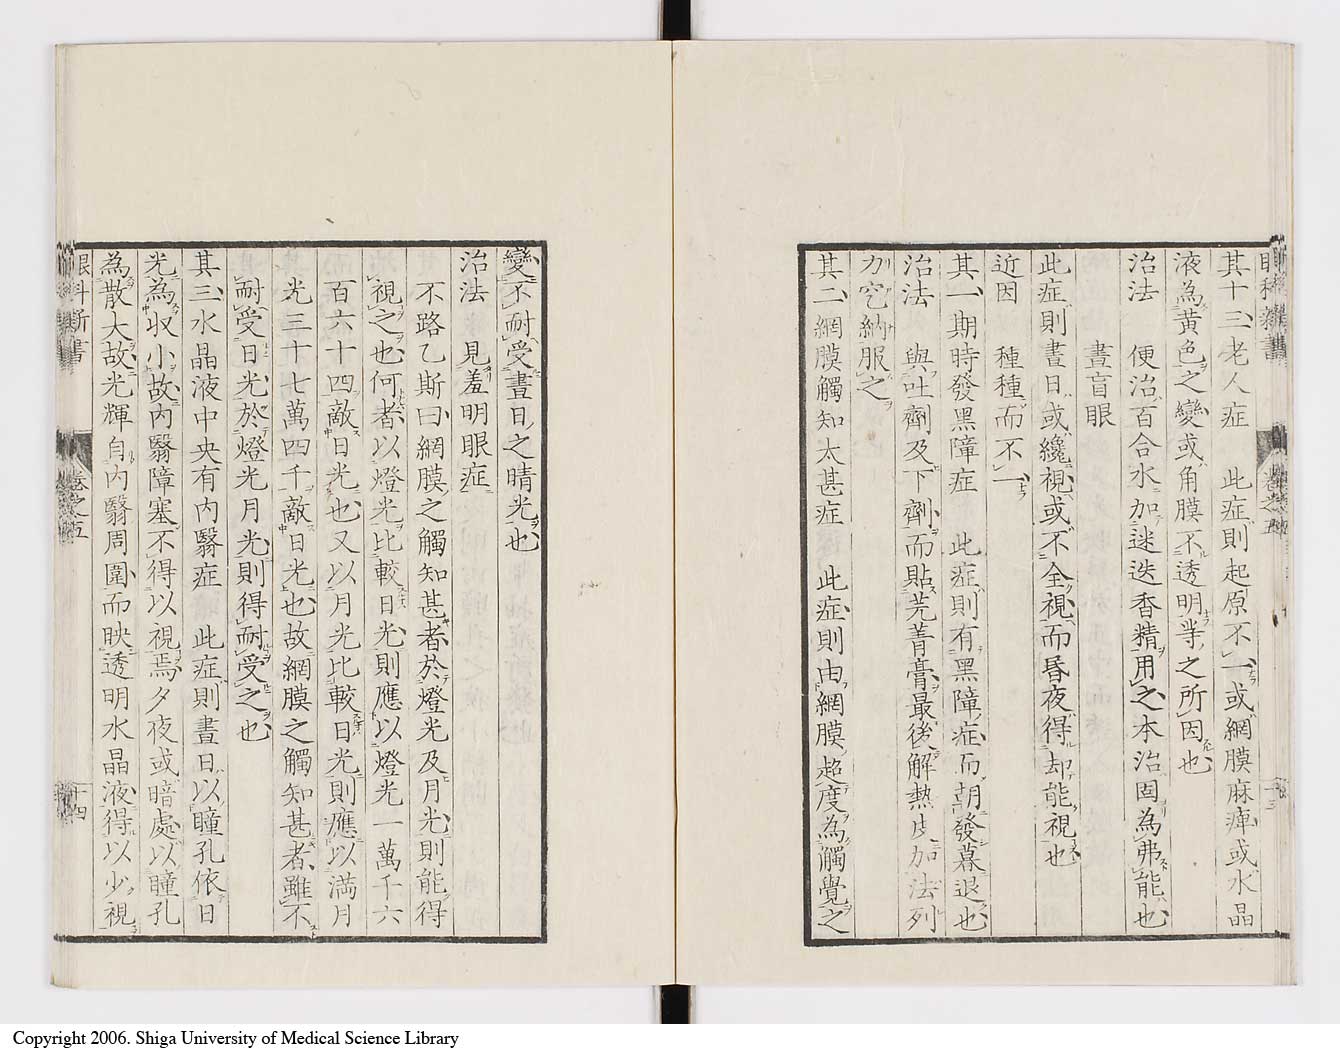 眼科新書
卷之五
十三
其十三老人症　此症則起原不一或網膜麻痺或水晶
液為黃色之變或角膜不透明等之所因也
治法　便治百合水加迷迭香精用之本治固為弗能也
晝盲眼
此症則晝日或纔視或不全視而昏夜得却能視也
近因　種種而不一
其一期時發黑障症　此症則有黑障症而朝發暮退也
治法　與吐劑及下劑而貼芫菁膏最後解熱皮加法列
力究納服之
其二網膜觸知太甚症　此症則由網膜超度為觸覺之
變不耐受晝日之晴光也
治法　見羞明眼症
不路乙斯曰網膜之觸知甚者於燈光及月光則能得
視之也何者以燈光比較日光則應以燈光一萬千六
百六十四敵日光也又以月光比較日光則應以滿月
光三十七萬四千敵日光也故網膜之觸知甚者雖不
耐受日光於燈光月光則得耐受之也
其三水晶液中央有内翳症　此症則晝日以瞳孔依日
光為收小故内翳障塞不得以視焉夕夜或暗處以瞳孔
為散大故光輝自内翳周圍而映透明水晶液得以少視
眼科新書
卷之五
十四
Copyright 2006. Shiga University of Medical Science Library